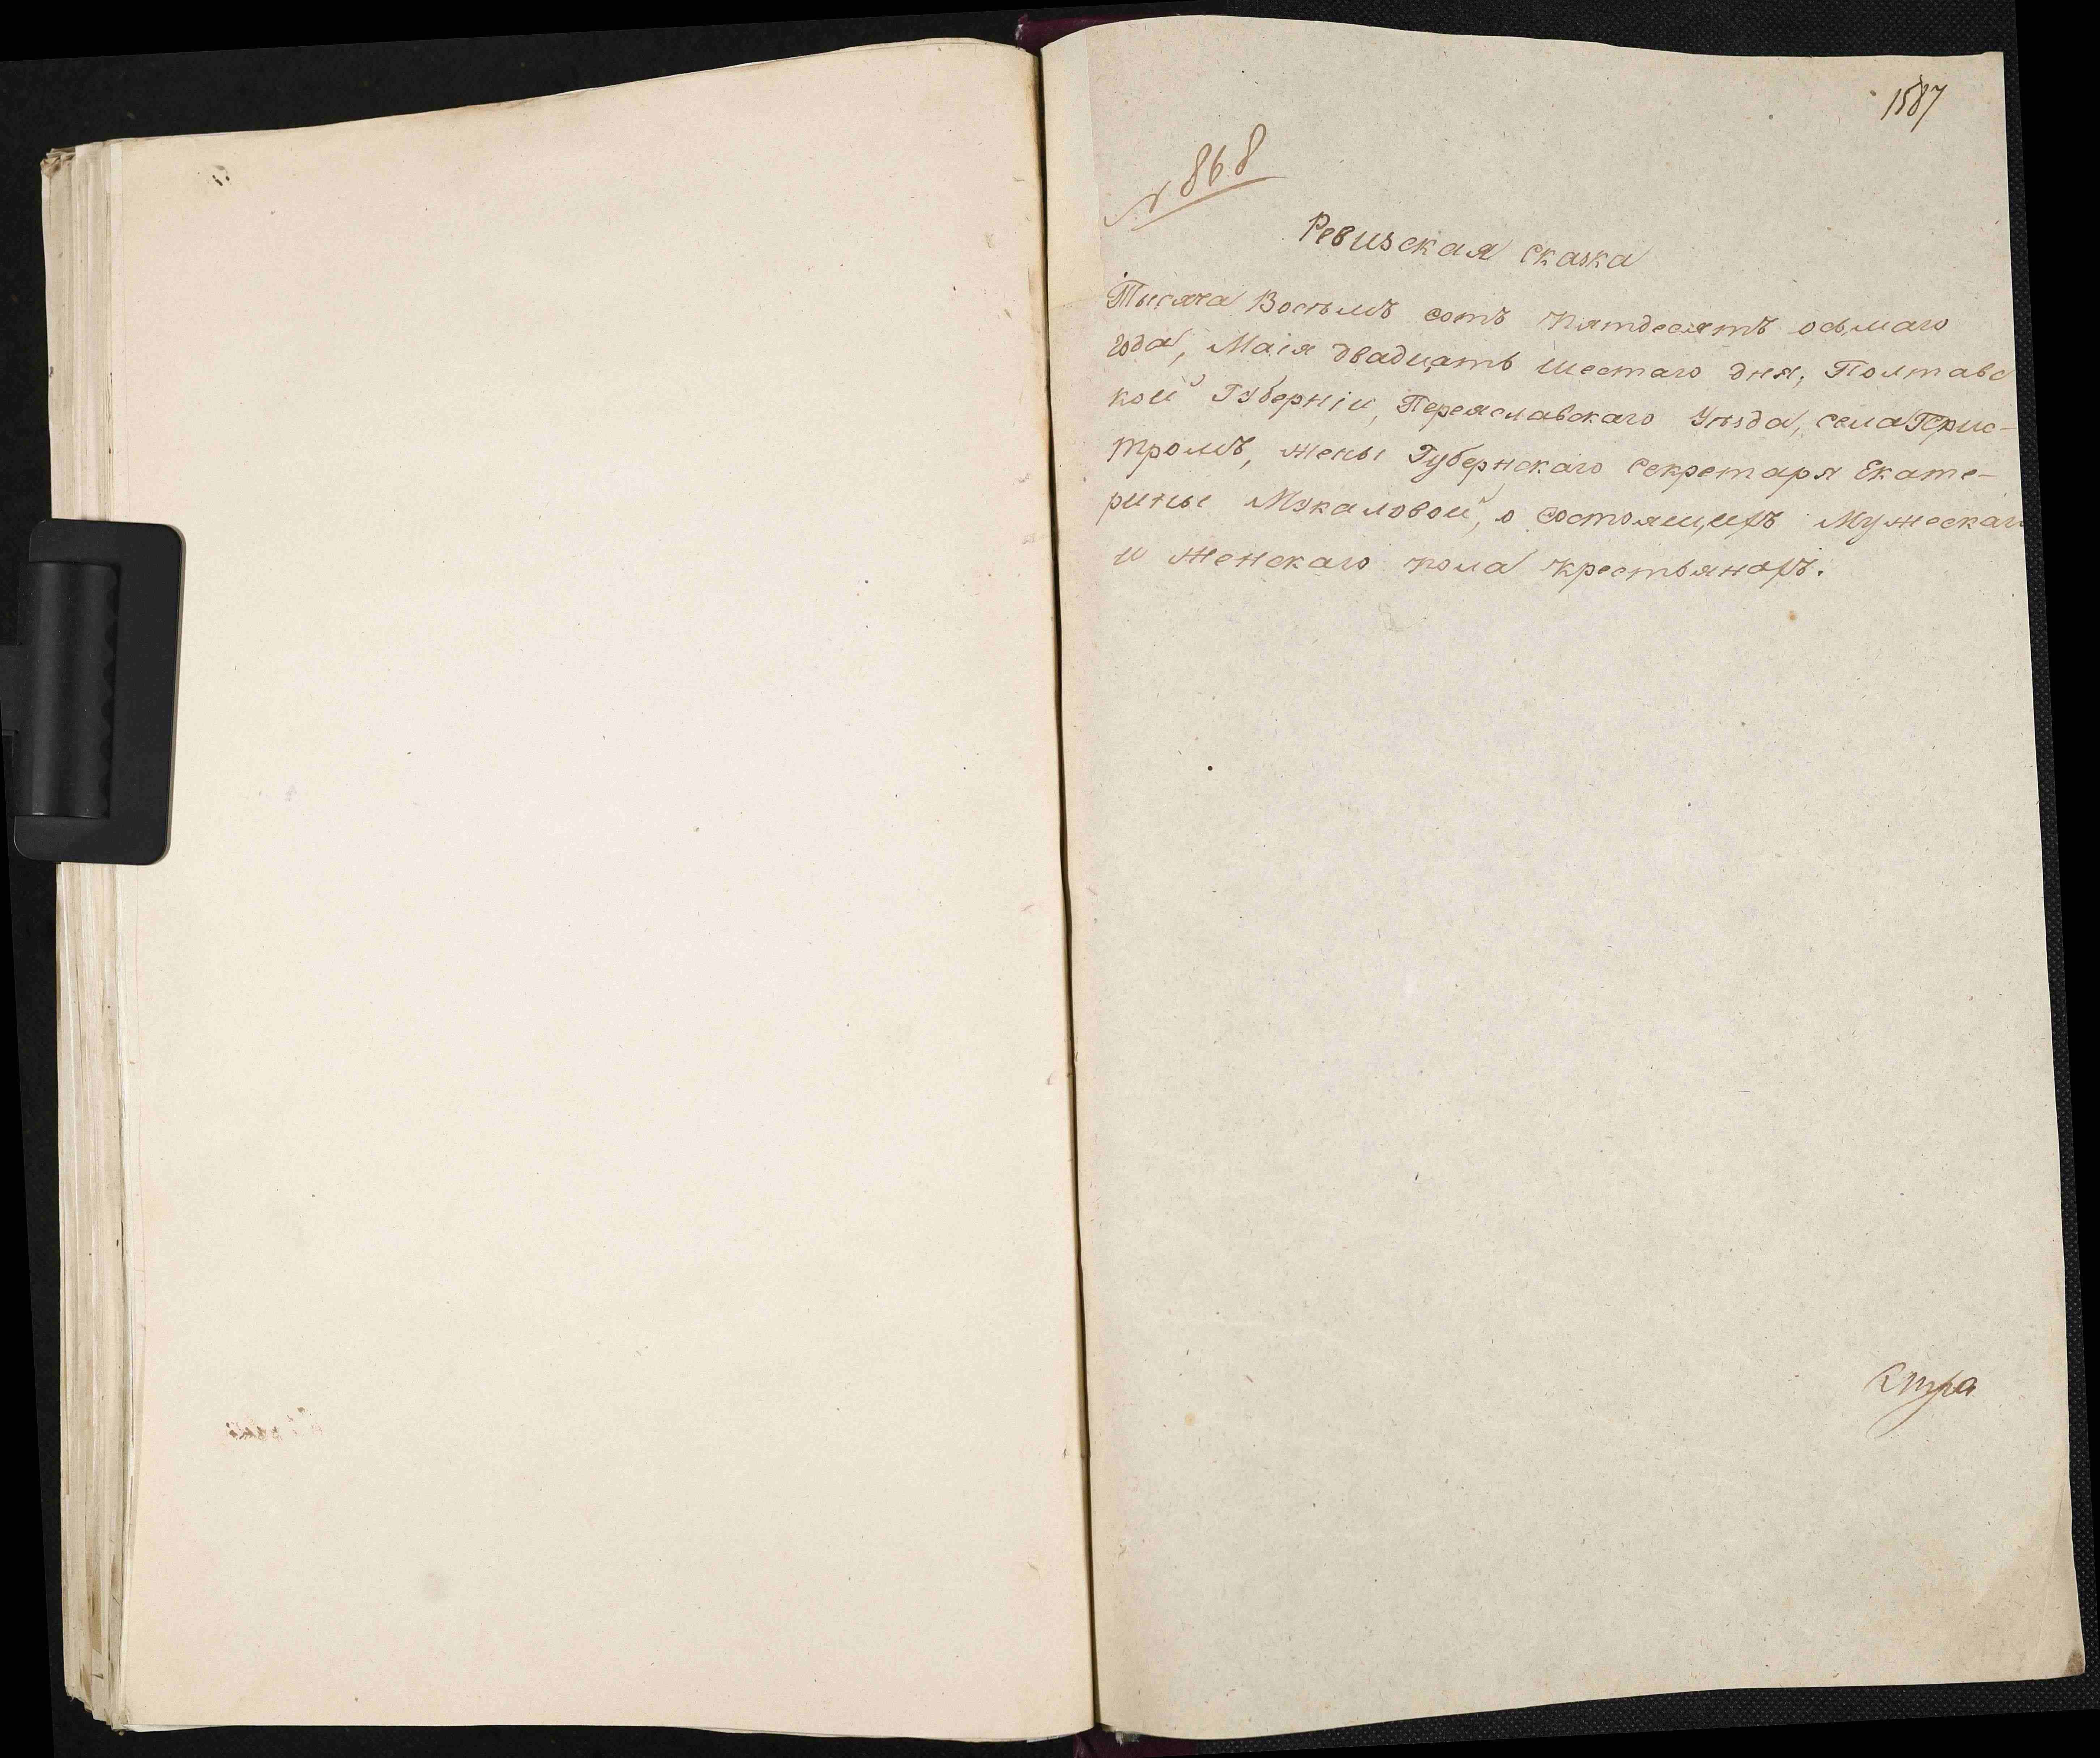 1587
№ 868
Ревизская сказка
Тысяча Восемь сотъ пятдесятъ осьмаго
года, Маія двадцать шестаго дня, Полтавс
кой Губерніи, Переяславскаго Уѣзда, села Прис-
тромъ, жены Губернскаго Секретаря Екате-
рины Мукаловой, о состоящихъ Мужескаго
и Женскаго пола крестьянахъ.